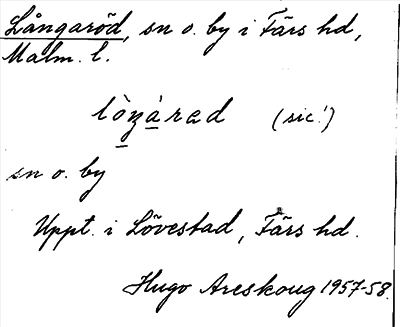 Långaröd, sn o. by i Färs hd,
Malm. l.
lòŋárad (sic!)
sn o. by
Uppt. i Lövestad, Färs hd.
Hugo Areskoug 1957-58.